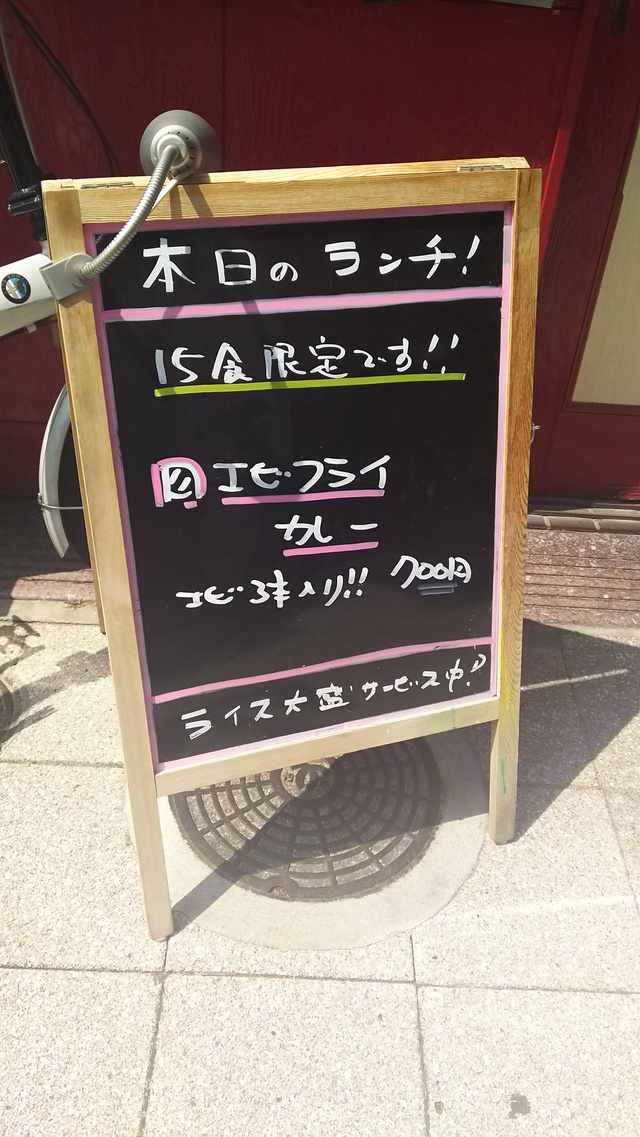 本日の ランチ!
15食限定です!!
エビフライ
カレー
エビ3本入り!! 700円
ライス大盛サービス中!